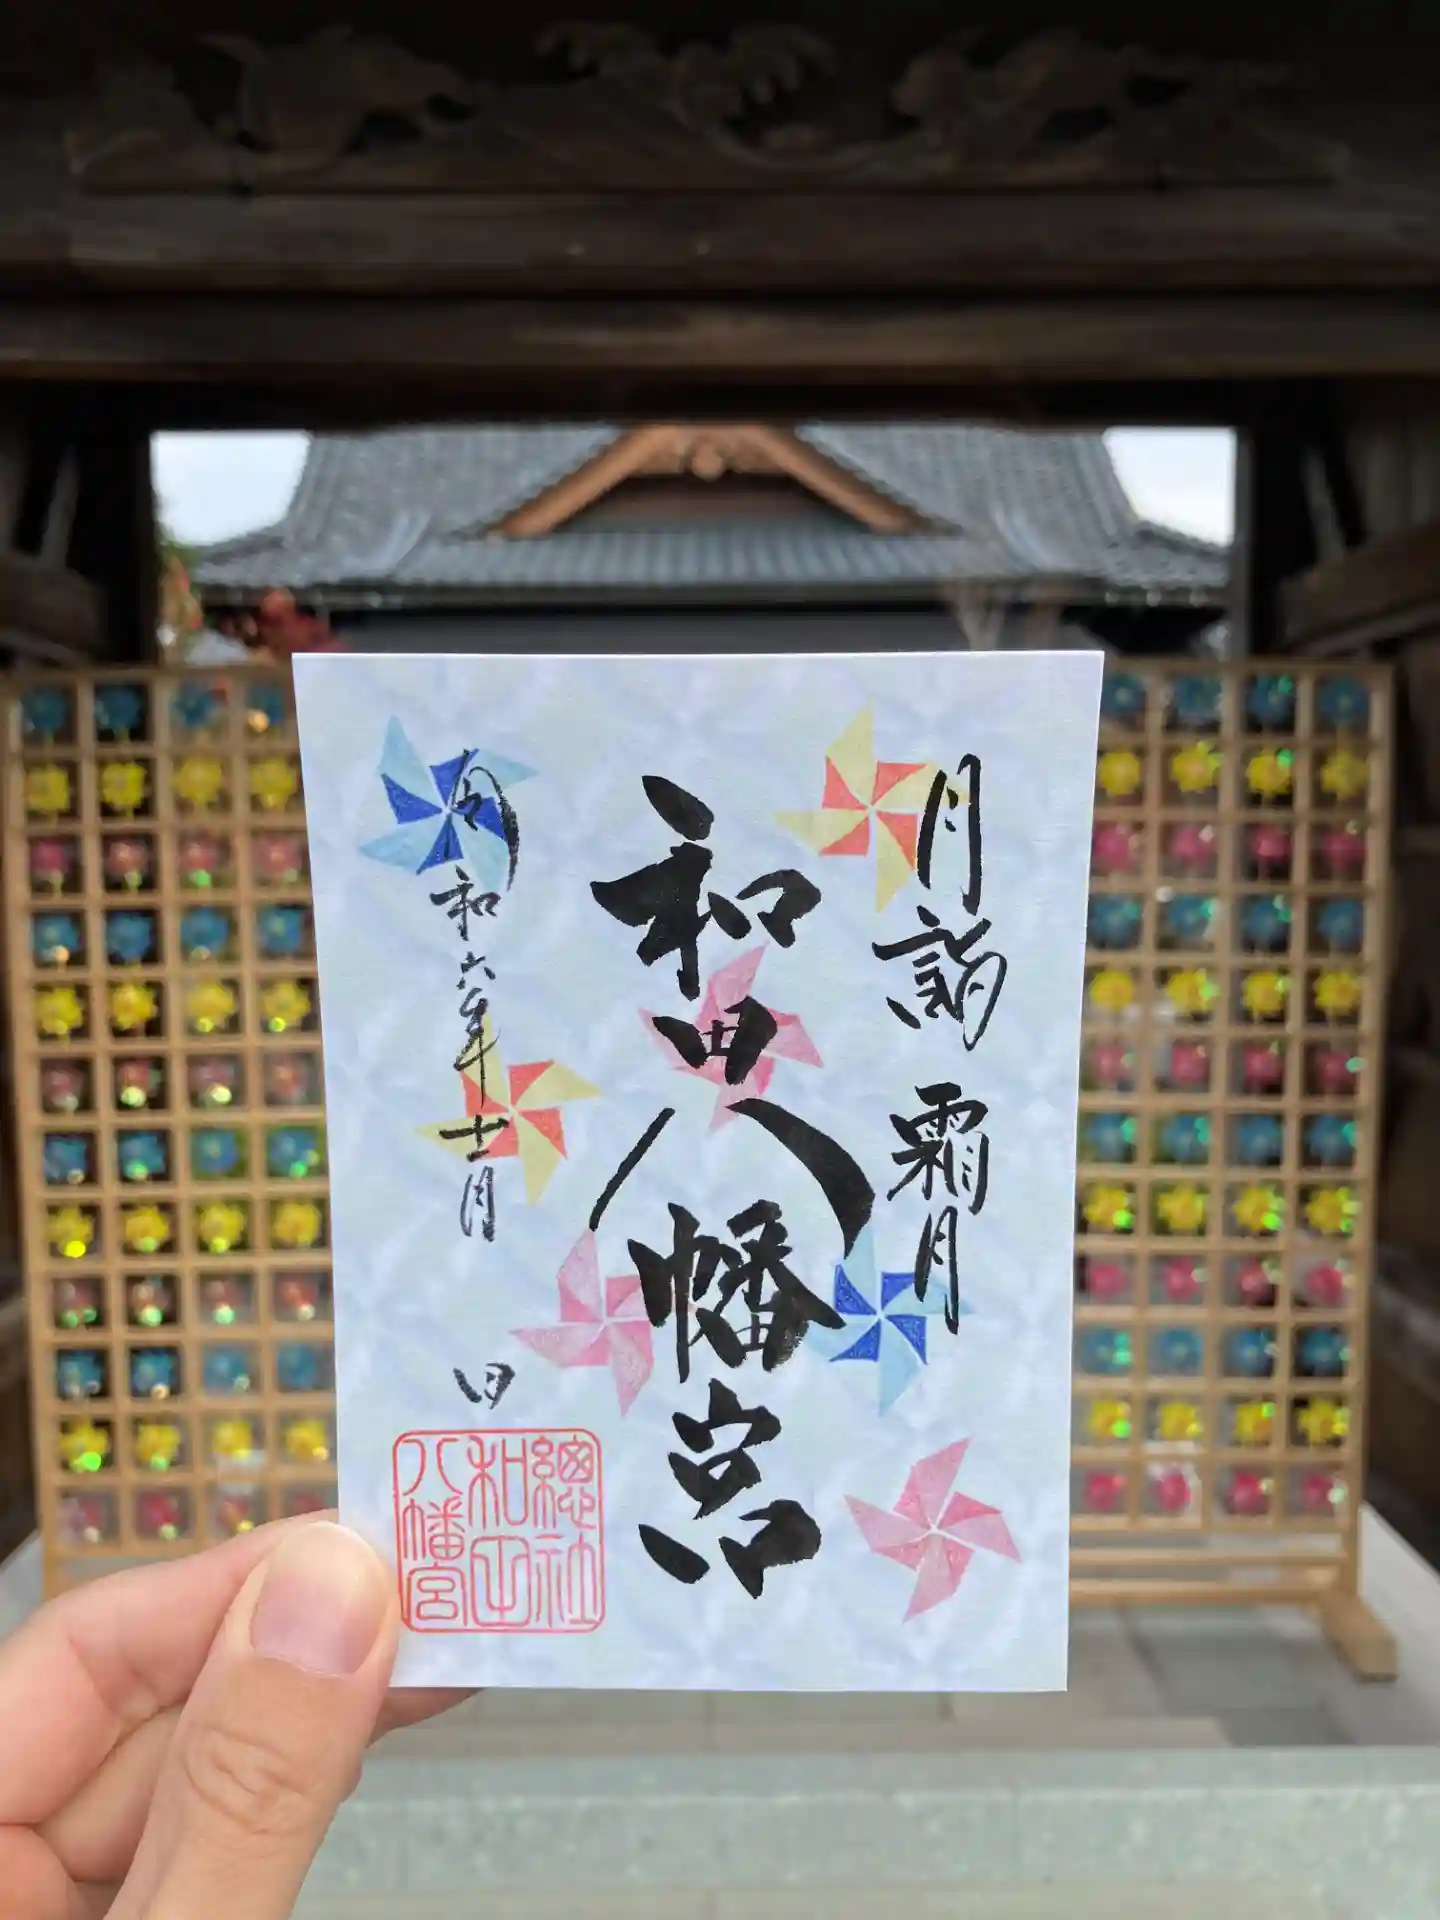 月詣 霜月
和田八幡宮
令和六年十一月 日
總社
和田
八幡宮